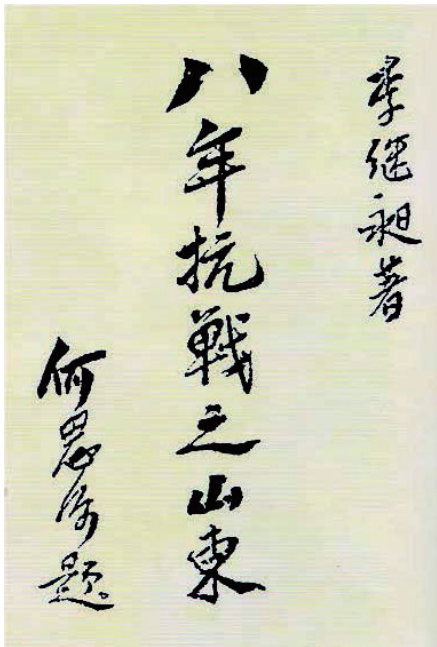 李继昶著
八年抗戰之山東
何思源題